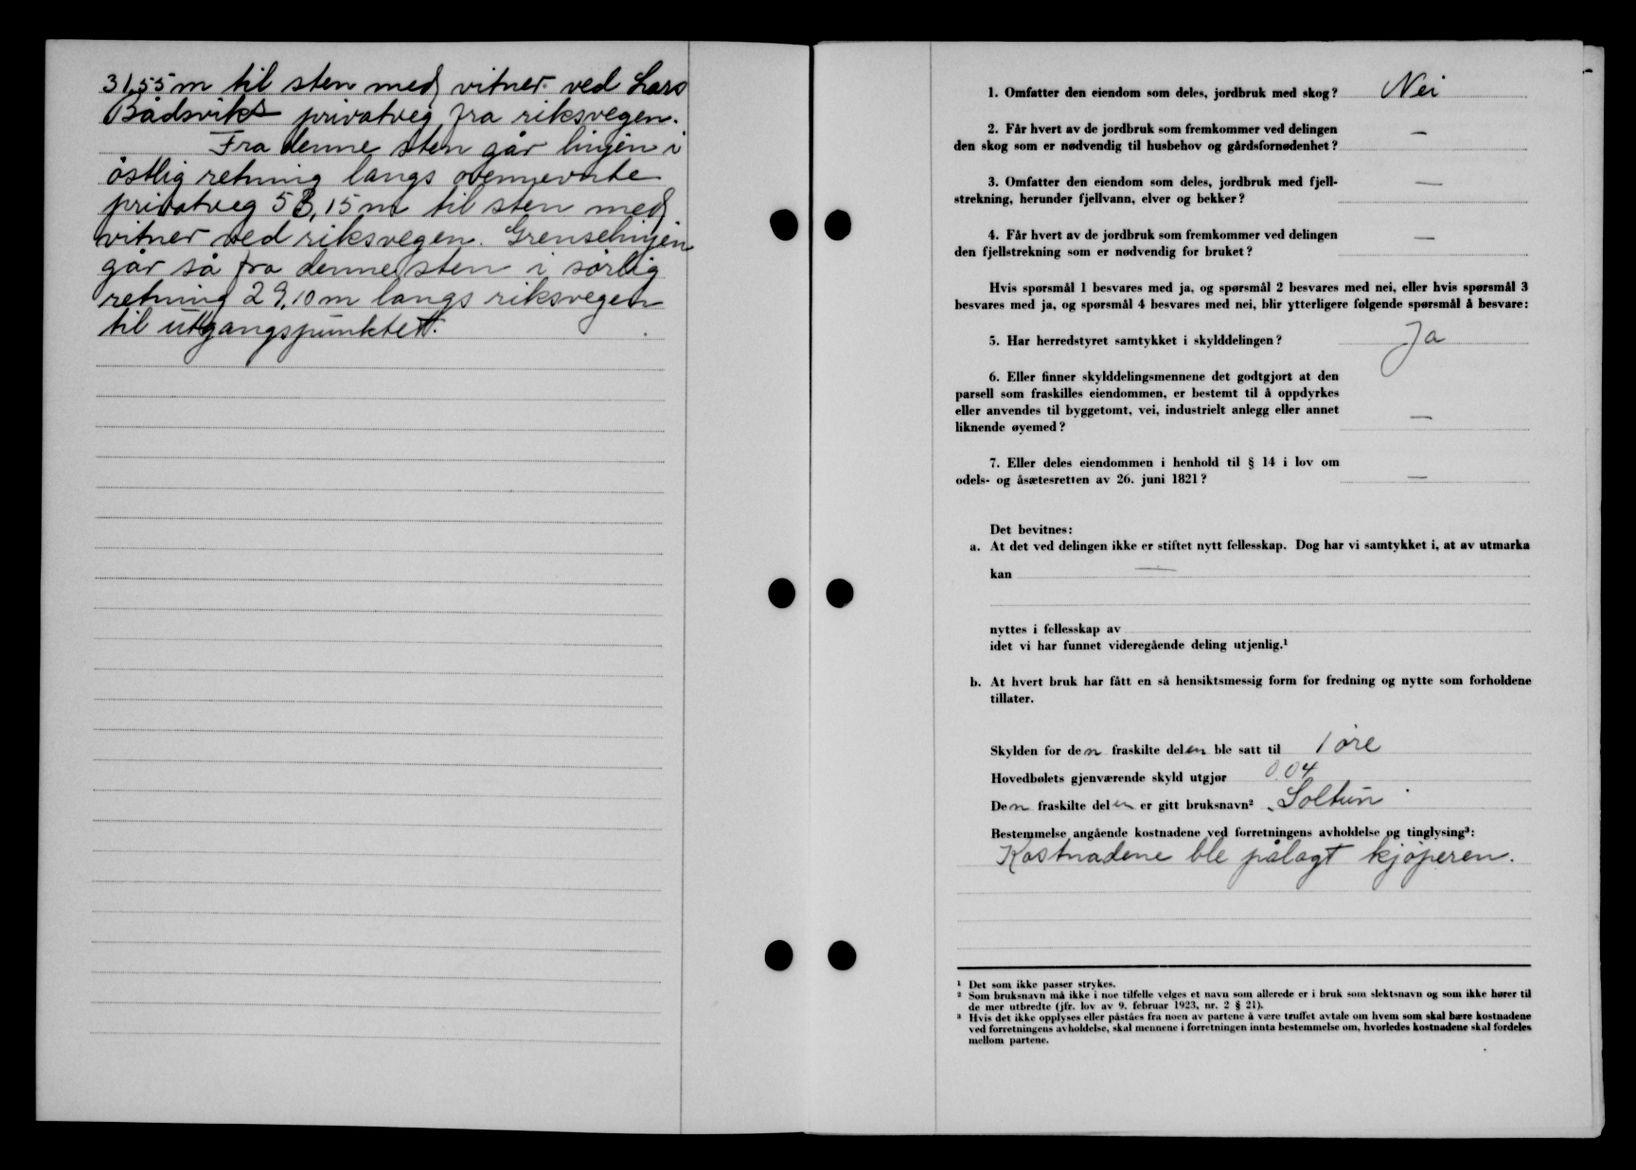 31,55 m til sten med vitner ved Lars
Bådsviks privatveg fra riksvegen.
Fra denne sten går linjen i
östlig retning langs ovennevnte
privatveg 53,15 m til sten med
vitner ved riksvegen. Grenselinjen
går så fra denne sten i sörlig
retning 29,10 m langs riksvegen
til utgangspunktet.
1. Omfatter den eiendom som deles, jordbruk med skog? Nei
2. Får hvert av de jordbruk som fremkommer ved delingen
den skog som er nødvendig til husbehov og gårdsfornødenhet? —
3. Omfatter den eiendom som deles, jordbruk med fjell-
strekning, herunder fjellvann, elver og bekker? —
4. Får hvert av de jordbruk som fremkommer ved delingen
den fjellstrekning som er nødvendig for bruket? —
Hvis spørsmål 1 besvares med ja, og spørsmål 2 besvares med nei, eller hvis spørsmål 3
besvares med ja, og spørsmål 4 besvares med nei, blir ytterligere følgende spørsmål å besvare:
5. Har herredstyret samtykket i skylddelingen? Ja
6. Eller finner skylddelingsmennene det godtgjort at den
parsell som fraskilles eiendommen, er bestemt til å oppdyrkes
eller anvendes til byggetomt, vei, industrielt anlegg eller annet
liknende øyemed? —
7. Eller deles eiendommen i henhold til § 14 i lov om
odels- og åsætesretten av 26. juni 1821? —
Det bevitnes:
a. At det ved delingen ikke er stiftet nytt fellesskap. Dog har vi samtykket i, at av utmarka
kan —
nyttes i fellesskap av
idet vi har funnet videregående deling utjenlig.¹
b. At hvert bruk har fått en så hensiktsmessig form for fredning og nytte som forholdene
tillater.
Skylden for den fraskilte delen ble satt til 1 øre
Hovedbølets gjenværende skyld utgjør 0.04
Den fraskilte delen er gitt bruksnavn² „Soltun"
Bestemmelse angående kostnadene ved forretningens avholdelse og tinglysing³:
Kostnadene ble pålagt kjøperen.
¹ Det som ikke passer strykes.
² Som bruksnavn må ikke i noe tilfelle velges et navn som allerede er i bruk som slektsnavn og som ikke hører til
de mer utbredte (jfr. lov av 9. februar 1923, nr. 2 § 21).
³ Hvis det ikke opplyses eller påståes fra noen av partene å være truffet avtale om hvem som skal bære kostnadene
ved forretningens avholdelse, skal mennene i forretningen innta bestemmelse om, hvorledes kostnadene skal fordeles
mellom partene.